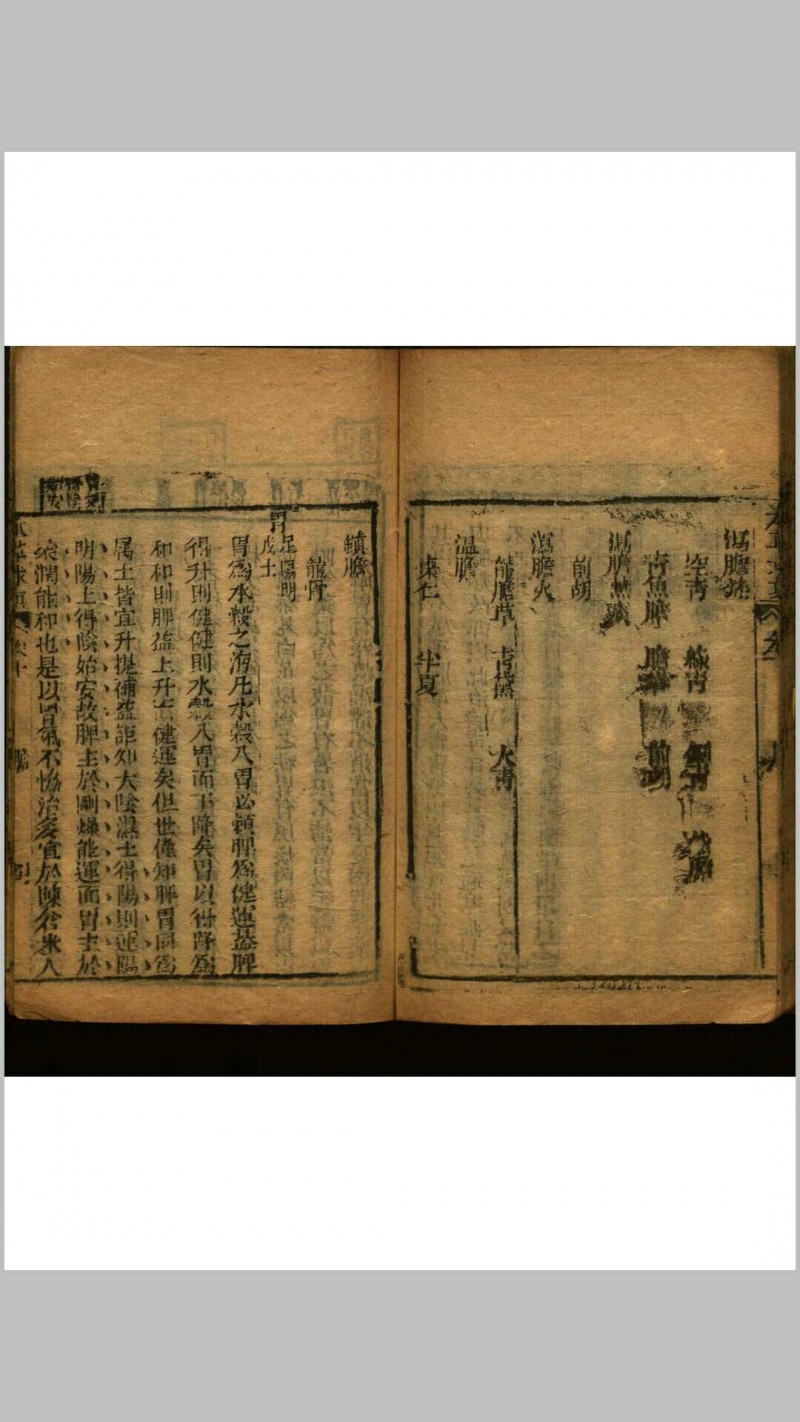 瀉膽熱
空青 綠青 銅青
青魚膽 膽礬 前胡
瀉膽熱痰
前胡
瀉膽火
龍膽草 青黛 大青
溫膽
棗仁 半夏
鎮膽
龍骨
胃
足陽明
戊土
胃為水穀之海凡水穀入胃必賴脾為健運蓋脾
得升則健健則水穀入胃而下降矣胃以得降為
和和則脾益上升而健運矣但世僅知脾胃同為
屬土皆宜升提補益詎知太陰濕土得陽則運陽
明陽土得陰始安故脾主於剛燥能運而胃主於
柔潤能和也是以胃氣不協治多宜於陳倉米人